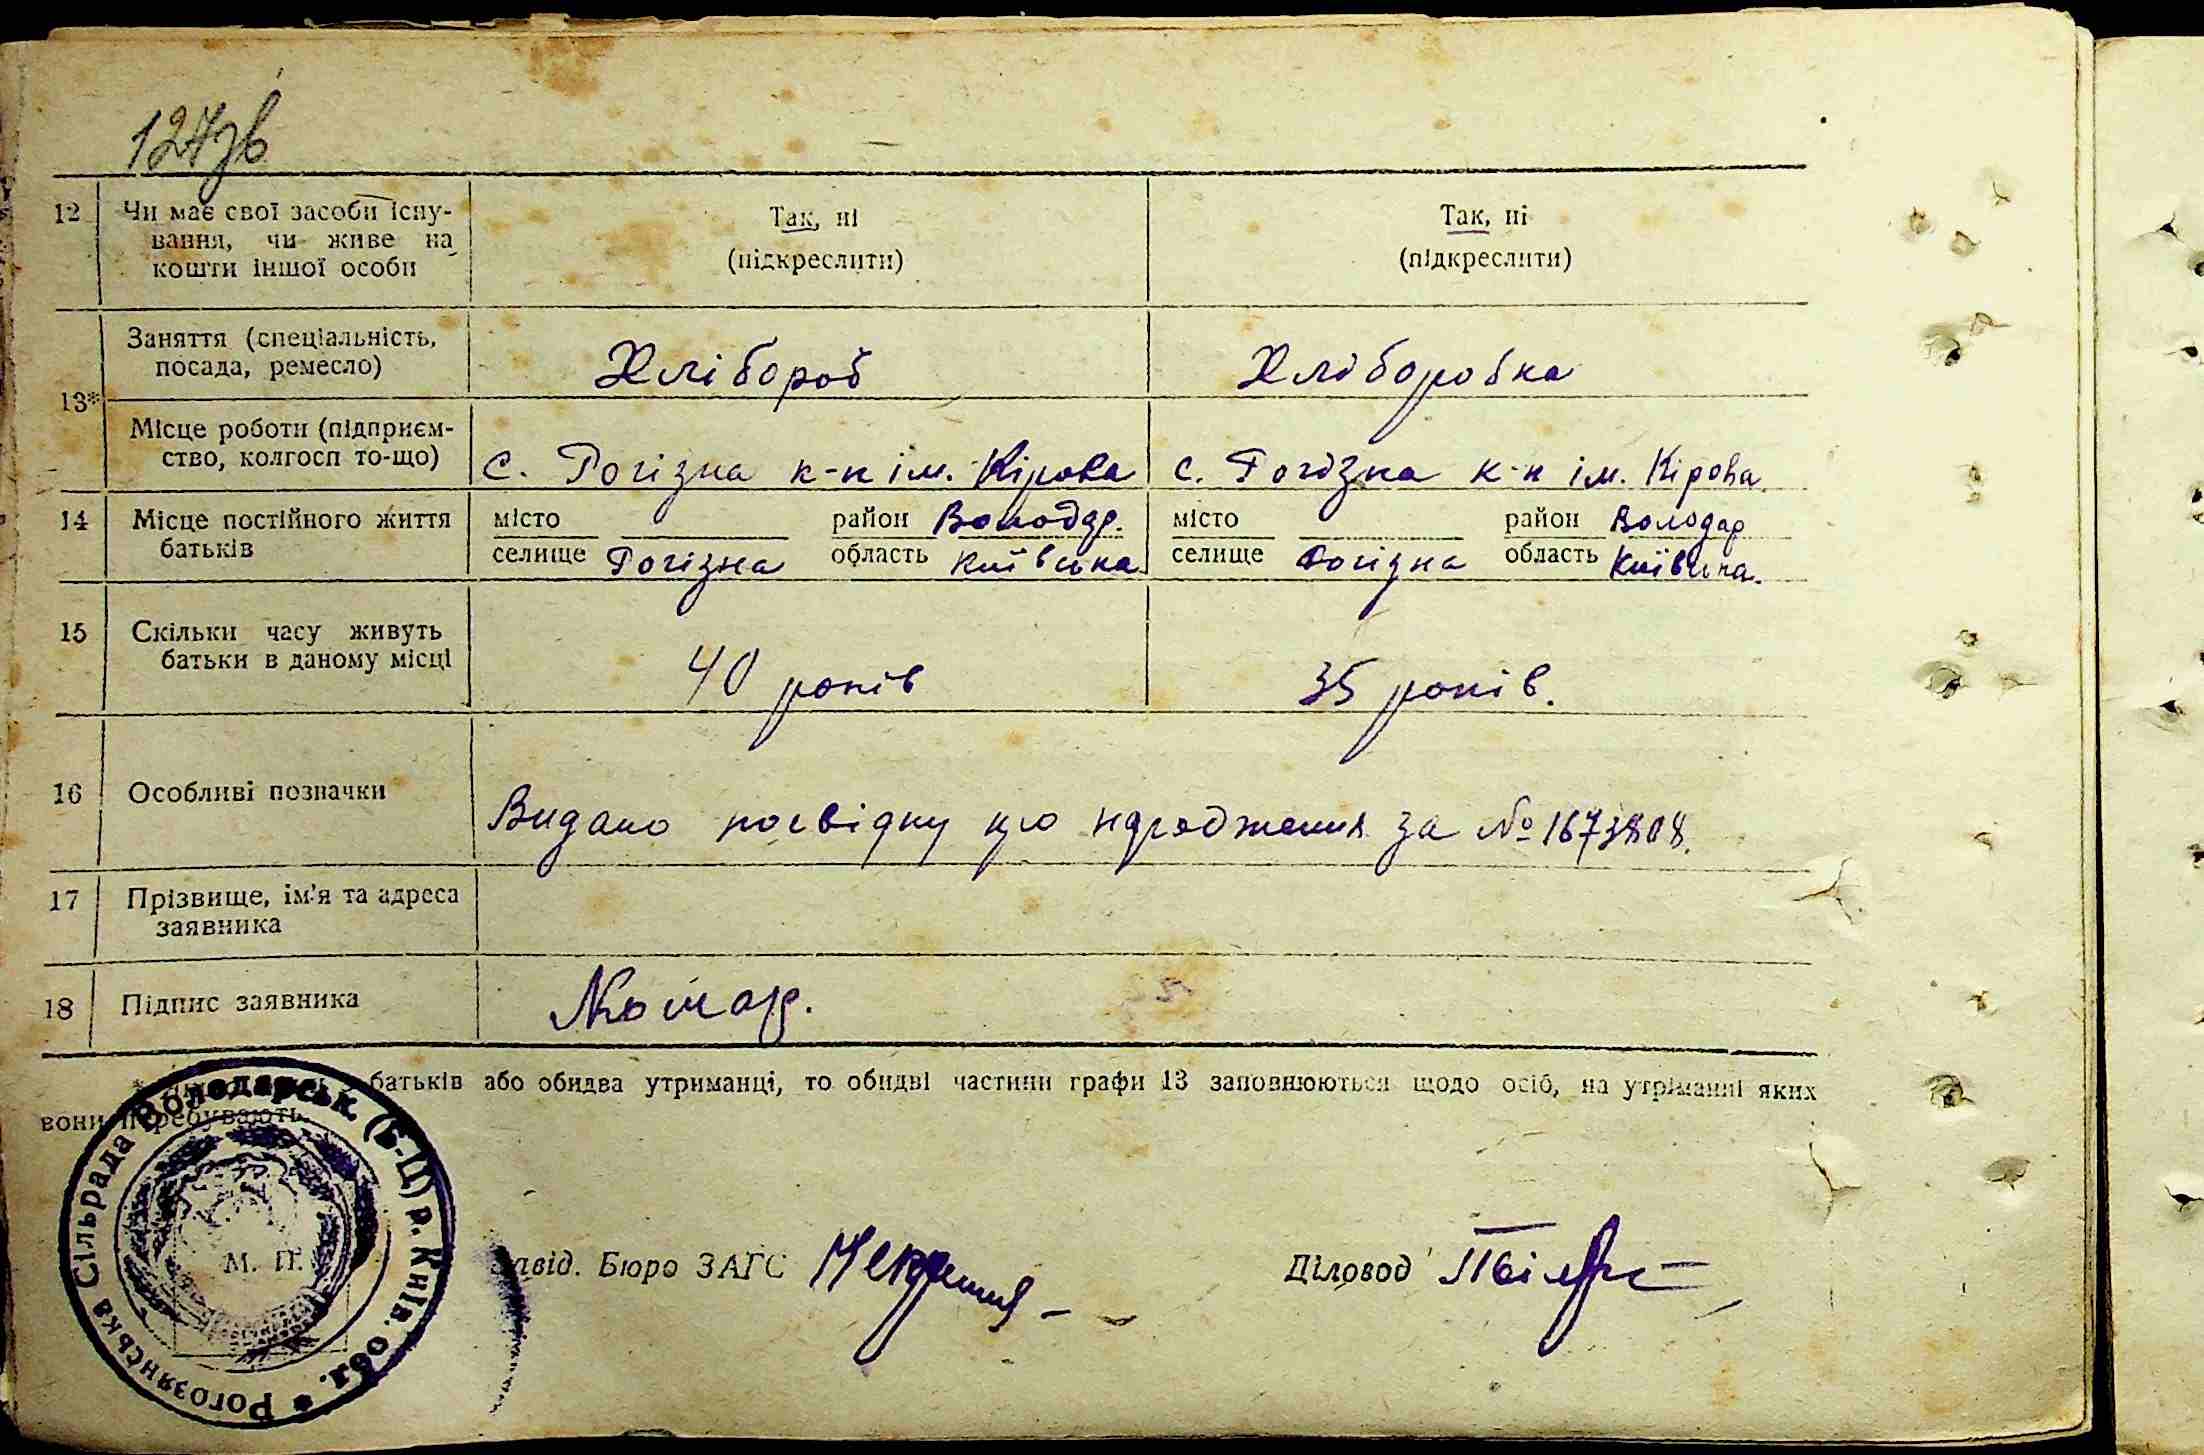 127зв
12 Чи має свої засоби існу-
вання, чи живе на
кошти іншої особи
Так, ні
(підкреслити)
Так, ні
(підкреслити)
13*
Заняття (спеціальність,
посада, ремесло)
Хлібороб
Хліборобка
Місце роботи (підприєм-
ство, колгосп то-що)
с. Рогізна к-п ім. Кірова
с. Рогізна к-п ім. Кірова.
14 Місце постійного життя
батьків
місто район Володар.
селище Рогізна область Київська
місто район Володар
селище Рогізна область Київська.
15 Скільки часу живуть
батьки в даному місці
40 років
35 років.
16 Особливі позначки
Видано посвідку про народження за № 1673808.
17 Прізвище, ім'я та адреса
заявника
18 Підпис заявника
Комар.
батьків або обидва утриманці, то обидві частини графи 13 заповнюються щодо осіб, на утриманні яких
вони перебувають.
Рогозянська Сільрада Володарськ. (Б-Ц) р. Київ. обл.
М. П.
Завід. Бюро ЗАГС
Діловод